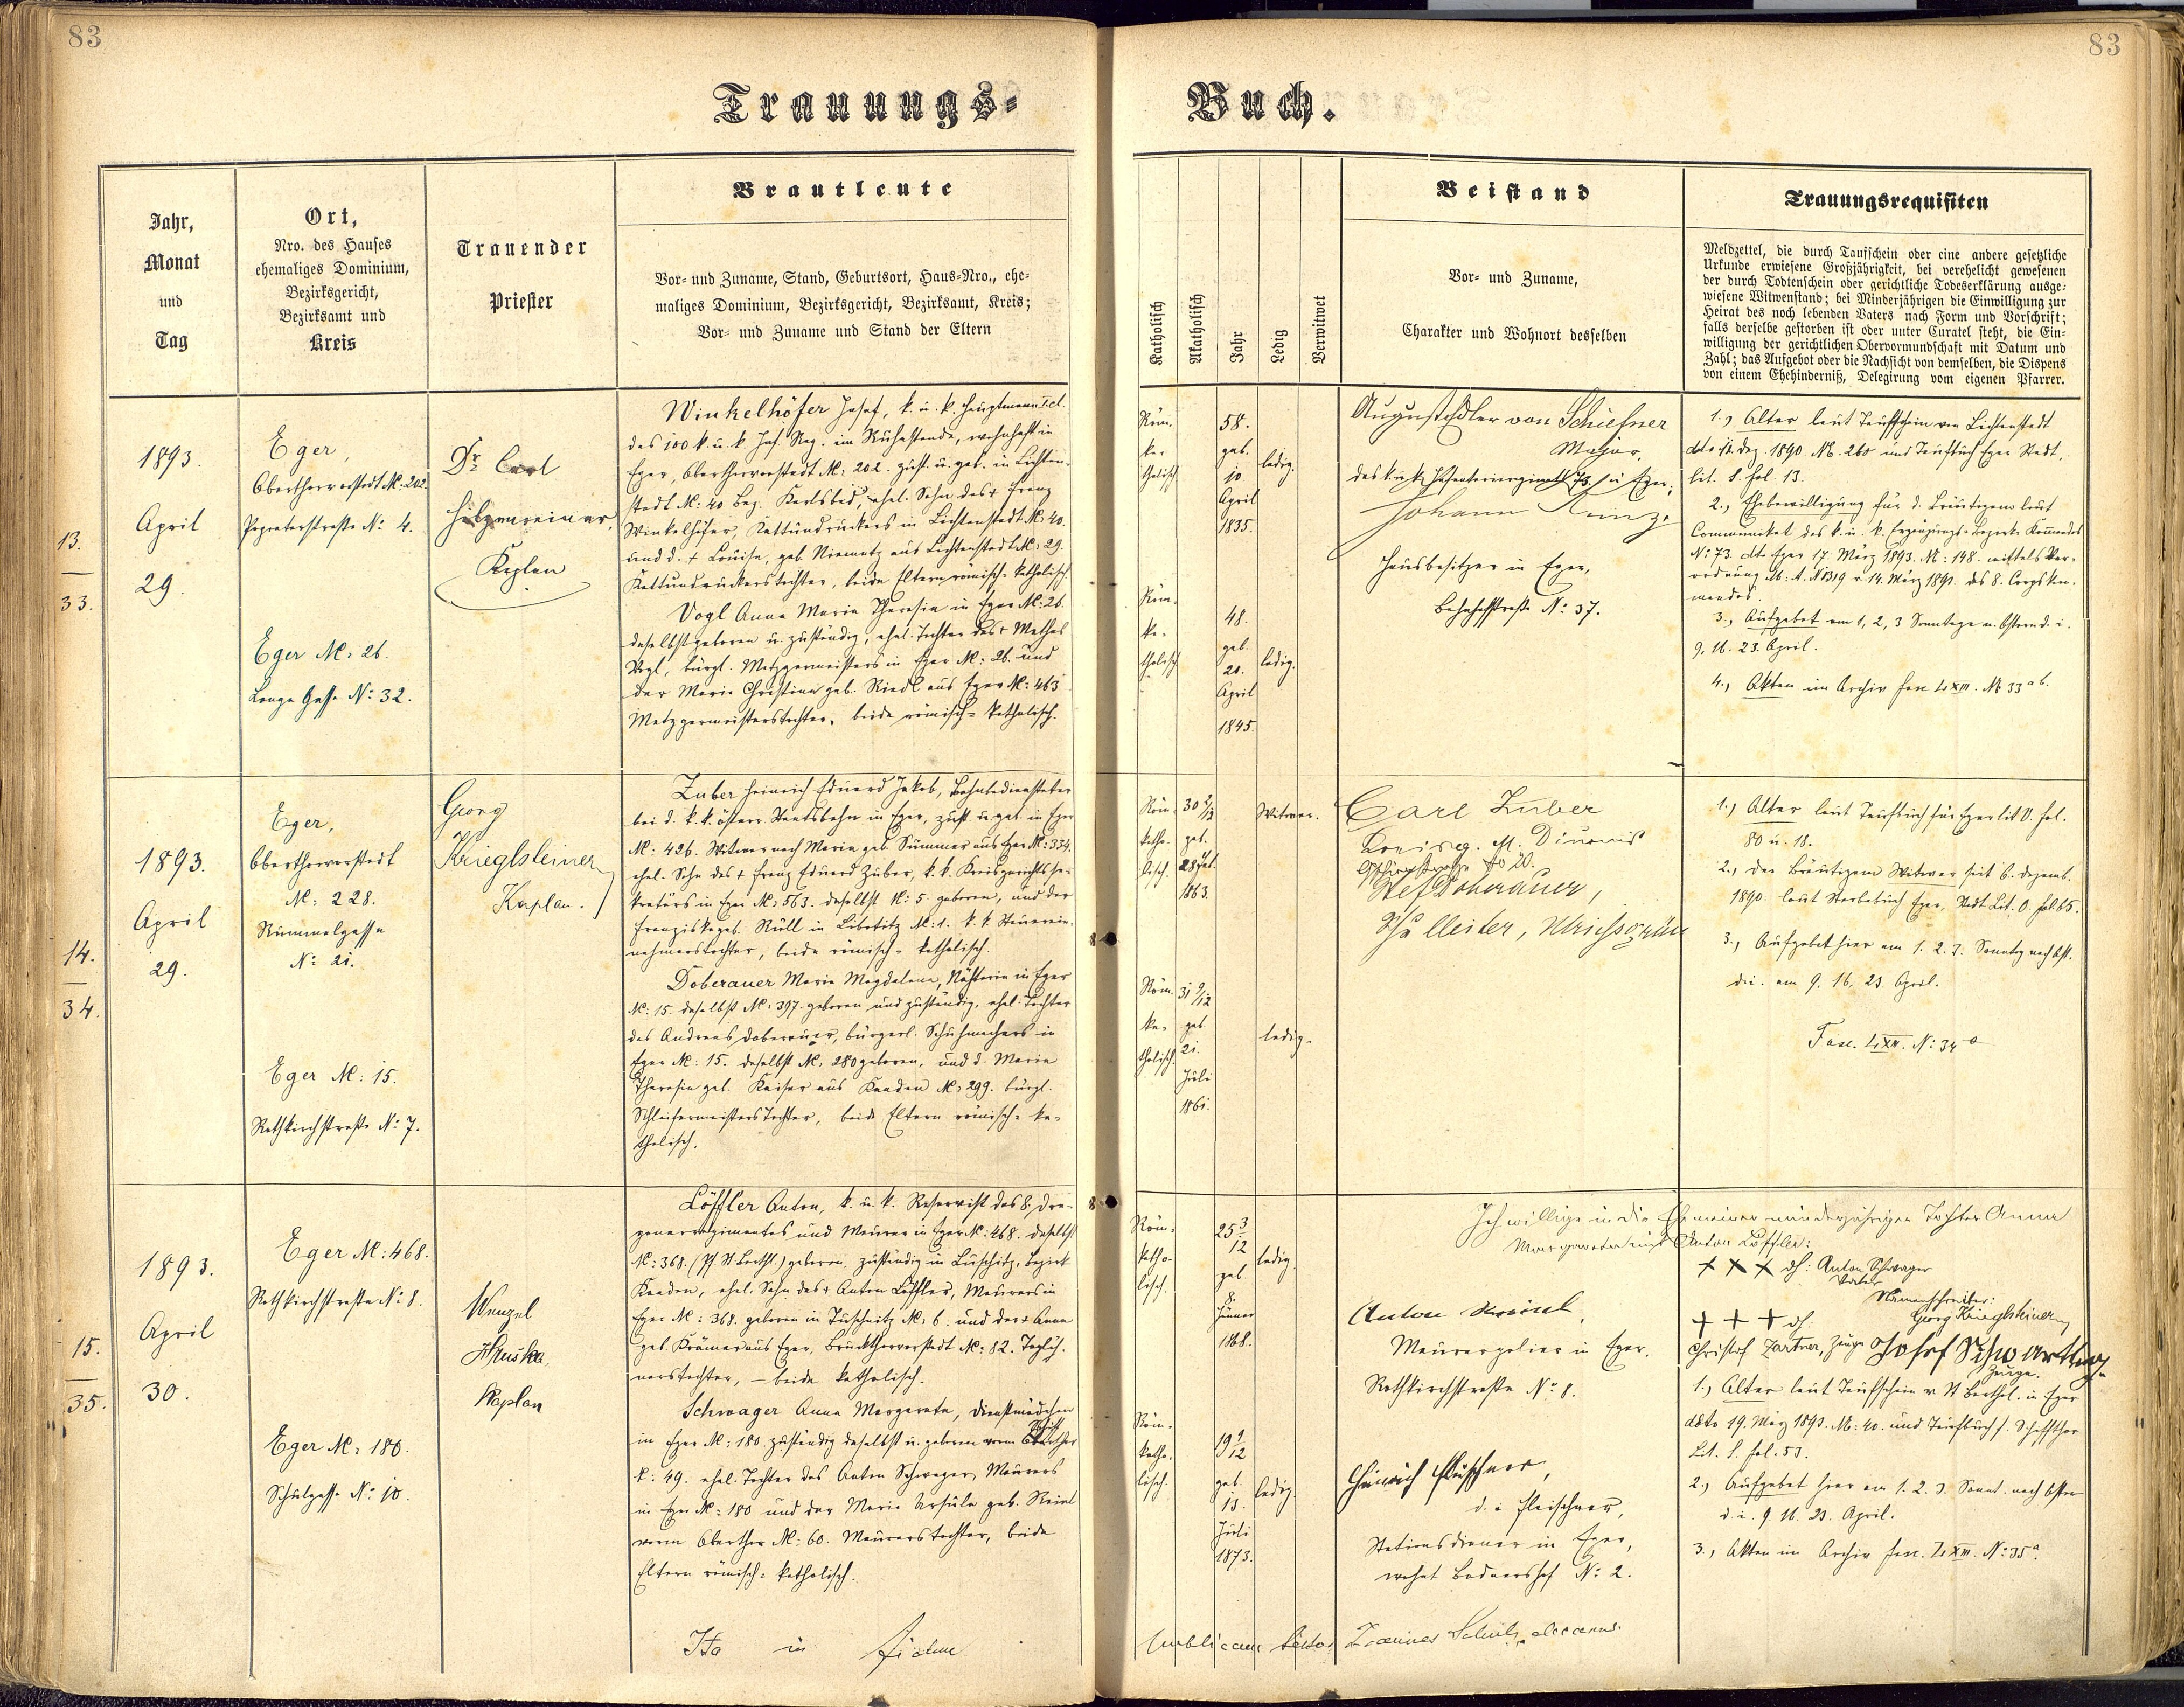 83
83
Trauungs-
Buch.
Jahr,
Monat
und
Tag
Ort,
Nro. des Hauses
ehemaliges Dominium,
Bezirksgericht,
Bezirksamt und
Kreis
Trauender
Priester
Brautleute
Vor- und Zuname, Stand, Geburtsort, Haus-Nro., ehe-
maliges Dominium, Bezirksgericht, Bezirksamt, Kreis;
Vor- und Zuname und Stand der Eltern
Katholisch
Akatholisch
Jahr
Ledig
Verwitwet
Beistand
Vor- und Zuname,
Charakter und Wohnort desselben
Trauungsrequisiten
Meldzettel, die durch Taufschein oder eine andere gesetzliche
Urkunde erwiesene Großjährigkeit, bei verehelicht gewesenen
der durch Todtenschein oder gerichtliche Todeserklärung ausge-
wiesene Witwenstand; bei Minderjährigen die Einwilligung zur
Heirat des noch lebenden Vaters nach Form und Vorschrift;
falls derselbe gestorben ist oder unter Curatel steht, die Ein-
willigung der gerichtlichen Obervormundschaft mit Datum und
Zahl; das Aufgebot oder die Nachsicht von demselben, die Dispens
von einem Ehehinderniß, Delegirung vom eigenen Pfarrer.
13.
33.
1893.
April
29.
Eger,
Oberthorvorstadt N: 202.
No 4.
Eger N: 26.
Lange Gasse No 32.
Dr Carl
Hilgenreiner,
Kaplan
Winkelhöfer Josef, k. u. k. Hauptmann I. cl.
des 100 k. u. k. Inf. Reg. im Ruhestande, wohnhaft in
Eger, Oberthorvorstadt N: 202. zust. u. geb. in Lichten-
stadt N: 40 Bez. Karlsbad, ehel. Sohn des + Franz
Winkelhöfer, Kattundruckers in Lichtenstadt N: 40.
und d. + Louise, geb. aus Lichtenstadt N: 29.
Kattundruckerstochter, beide Eltern römisch-katholisch.
Vogl Anna Maria Theresia in Eger N: 26.
daselbst geboren u. zuständig, ehel. Tochter des + Mathes
Vogl, bürgl. Metzgermeisters in Eger N: 26. und
der Maria Christina geb. Riedl aus Eger N: 463
Metzgermeisterstochter, beide römisch-katholisch.
Röm.
ka-
tholisch
58.
geb.
10
April
1835.
ledig.
Röm.
ka-
tholisch
48.
geb.
21.
April
1845.
ledig.
August Edler von Schiefner
Major,
des k. u. k. Infanterieregiments 73 in Eger;
Johann Kunz,
Hausbesitzer in Eger,
Bahnhofstraße No 37.
1., Alter laut Taufschein von Lichtenstadt
dto Dez. 1890. No. 260 und Taufbuch Eger Stadt,
lit. S. fol. 13.
2., Ehebewilligung für d. Bräutigam laut
Communikat des k. u. k. Ergänzungs-Bezirks Kommandos
No 73. dto Eger 17. März 1893. N: 148. mittels Ver-
ordnung v. 14. März 1893. des 8. Corpskom-
mandos.
3., Aufgebot am 1, 2, 3 Sonntage n. Ostern d. i.
9. 16. 23. April.
4., Akten im Archiv fasc. LXIII. No 33 a b.
14.
34.
1893.
April
29.
Eger,
Oberthorvorstadt
N: 228.
Rümmelgasse
No 21.
Eger N: 15.
Rothkirchstraße No 7.
Georg
Krieglsteiner
Kaplan.
Zuber Heinrich Eduard Jakob, Bahnbediensteter
bei d. k. k. österr. Staatsbahn in Eger, zust. u. geb. in Eger
N: 426. Witwer nach Maria geb. Summer aus Eger N: 334.
ehel. Sohn des + Franz Eduard Zuber, k. k. Kreisgerichtsse-
kretärs in Eger N: 563. daselbst N: 5. geboren, und der
Franziska geb. Rüll in Libotitz N: 1. k. k. Steuerein-
nehmerstochter, beide römisch-katholisch.
Doberauer Maria Magdalena, Nähterin in Eger
N: 15. daselbst N: 397. geboren und zuständig, ehel. Tochter
des Andreas Doberauer, bürgerl. Schuhmachers in
Eger N: 15. daselbst N: 280 geboren, und d. Maria
Theresia geb. Kaiser aus Kaaden N: 299. bürgl.
Schleifermeisters Tochter, beide Eltern römisch-ka-
tholisch.
Röm.
katho-
lisch.
30
geb.
1863.
Witwer.
Röm.
ka-
tholisch.
31 9/12
geb.
21.
Juli
1861.
ledig.
Carl Zuber
No 20.
Doberauer,
Schulleiter, Ulrichsgrün
1., Alter laut Taufbuch für Eger lit V. fol.
80 u. 18.
2., Der Bräutigam Witwer seit 6. Dezemb.
1890. laut Sterbebuch Eger, Stadt Lit. O. fol. 65.
3., Aufgebot hier am 1. 2. 3. Sonntag nach Ost.
d. i. am 9. 16. 23. April.
Fasc. LXII. No 34 a
15.
35.
1893.
April
30.
Eger N: 468.
Rothkirchstraße No 8.
Eger N: 180.
Schulgasse No 10.
Wenzel
Hruška,
Kaplan
Löffler Anton, k. u. k. Reservist des 8. Dra-
gonerregimentes und Maurer in Eger N: 468. daselbst
N: 368. (Pf. St. Barthl.) geboren, zuständig in Luschitz, Bezirk
Kaaden, ehel. Sohn des + Anton Löffler, Maurers in
Eger N: 368. geboren in Tuschmitz N: 6. und der + Anna
geb. Krämer aus Eger, Bruckthorvorstadt N: 82. Taglöh-
nerstochter, – beide katholisch.
Schwager Anna Margareta, Dienstmädchen
in Eger N: 180. zuständig daselbst u. geboren vorm Schiftthor
N: 49. ehel. Tochter des Anton Schwager, Maurers
in Eger N: 180 und der Maria Ursula geb.
vorm Oberthor N: 60. Maurerstochter, beide
Eltern römisch-katholisch.
Ita in fidem
Röm.
katho-
lisch.
25 3/12
geb.
8.
Jänner
1868.
ledig.
Röm.
katho-
lisch.
19 9/12
geb.
13.
Juli
1873.
ledig.
Anton
Maurerpolier in Eger,
Rothkirchstraße No 8.
Heinrich Fleischner,
d. i. Fleischner,
Stationsdiener in Eger,
wohnt Bodnershof No 2.
Ich willige in die Ehe meiner minderjährigen Tochter Anna
Margareta mit Anton Löffler:
+ + + dh: Anton Schwager
Vater
Namenschreiber:
Georg Krieglsteiner
+ + + dh:
Christof Zartner, Zeuge
Josef Schwartling
Zeuge.
1., Alter laut Taufschein v. St. Barthl. in Eger
ddto 19. März 1893. N: 40. und Taufbuch f. Schifftthor
Lit. S. fol. 53.
2., Aufgebot hier am 1. 2. 3. Sonnt. nach Ostern
d. i. 9. 16. 23. April.
3., Akten im Archiv fasc. LXIII. No 35 a.
Joannes